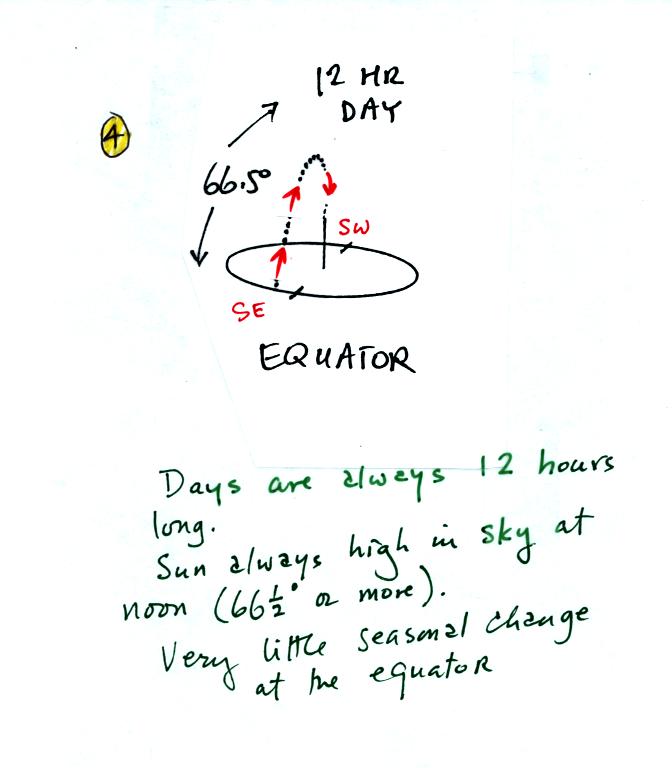 12 HR
DAY
4
66.5°
SW
SE
EQUATOR
Days are always 12 hours
long.
Sun always high in sky at
noon (66 1/2° or more).
Very little seasonal change
at the equator